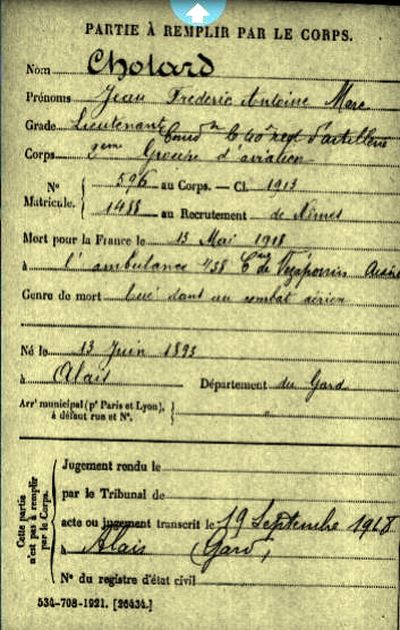 PARTIE À REMPLIR PAR LE CORPS.
Nom Cholard
Prénoms Jean Frédéric Antoine Marc
Grade Lieutenant
Corps 2ème Groupe d'aviation
N° Matricule. { 596 au Corps. — Cl. 1913
1488 au Recrutement de Nîmes
Mort pour la France le 13 Mai 1918
à l'ambulance
Genre de mort tué dans un combat aérien
Né le 13 Juin 1893
à Alais Département du Gard
Arr' municipal (p' Paris et Lyon), à défaut rue et N°. } "
Cette partie n'est pas à remplir par le Corps.
Jugement rendu le
par le Tribunal de
acte ou jugement transcrit le 19 Septembre 1918
à Alais (Gard)
N° du registre d'état civil
534-708-1921. [26434.]